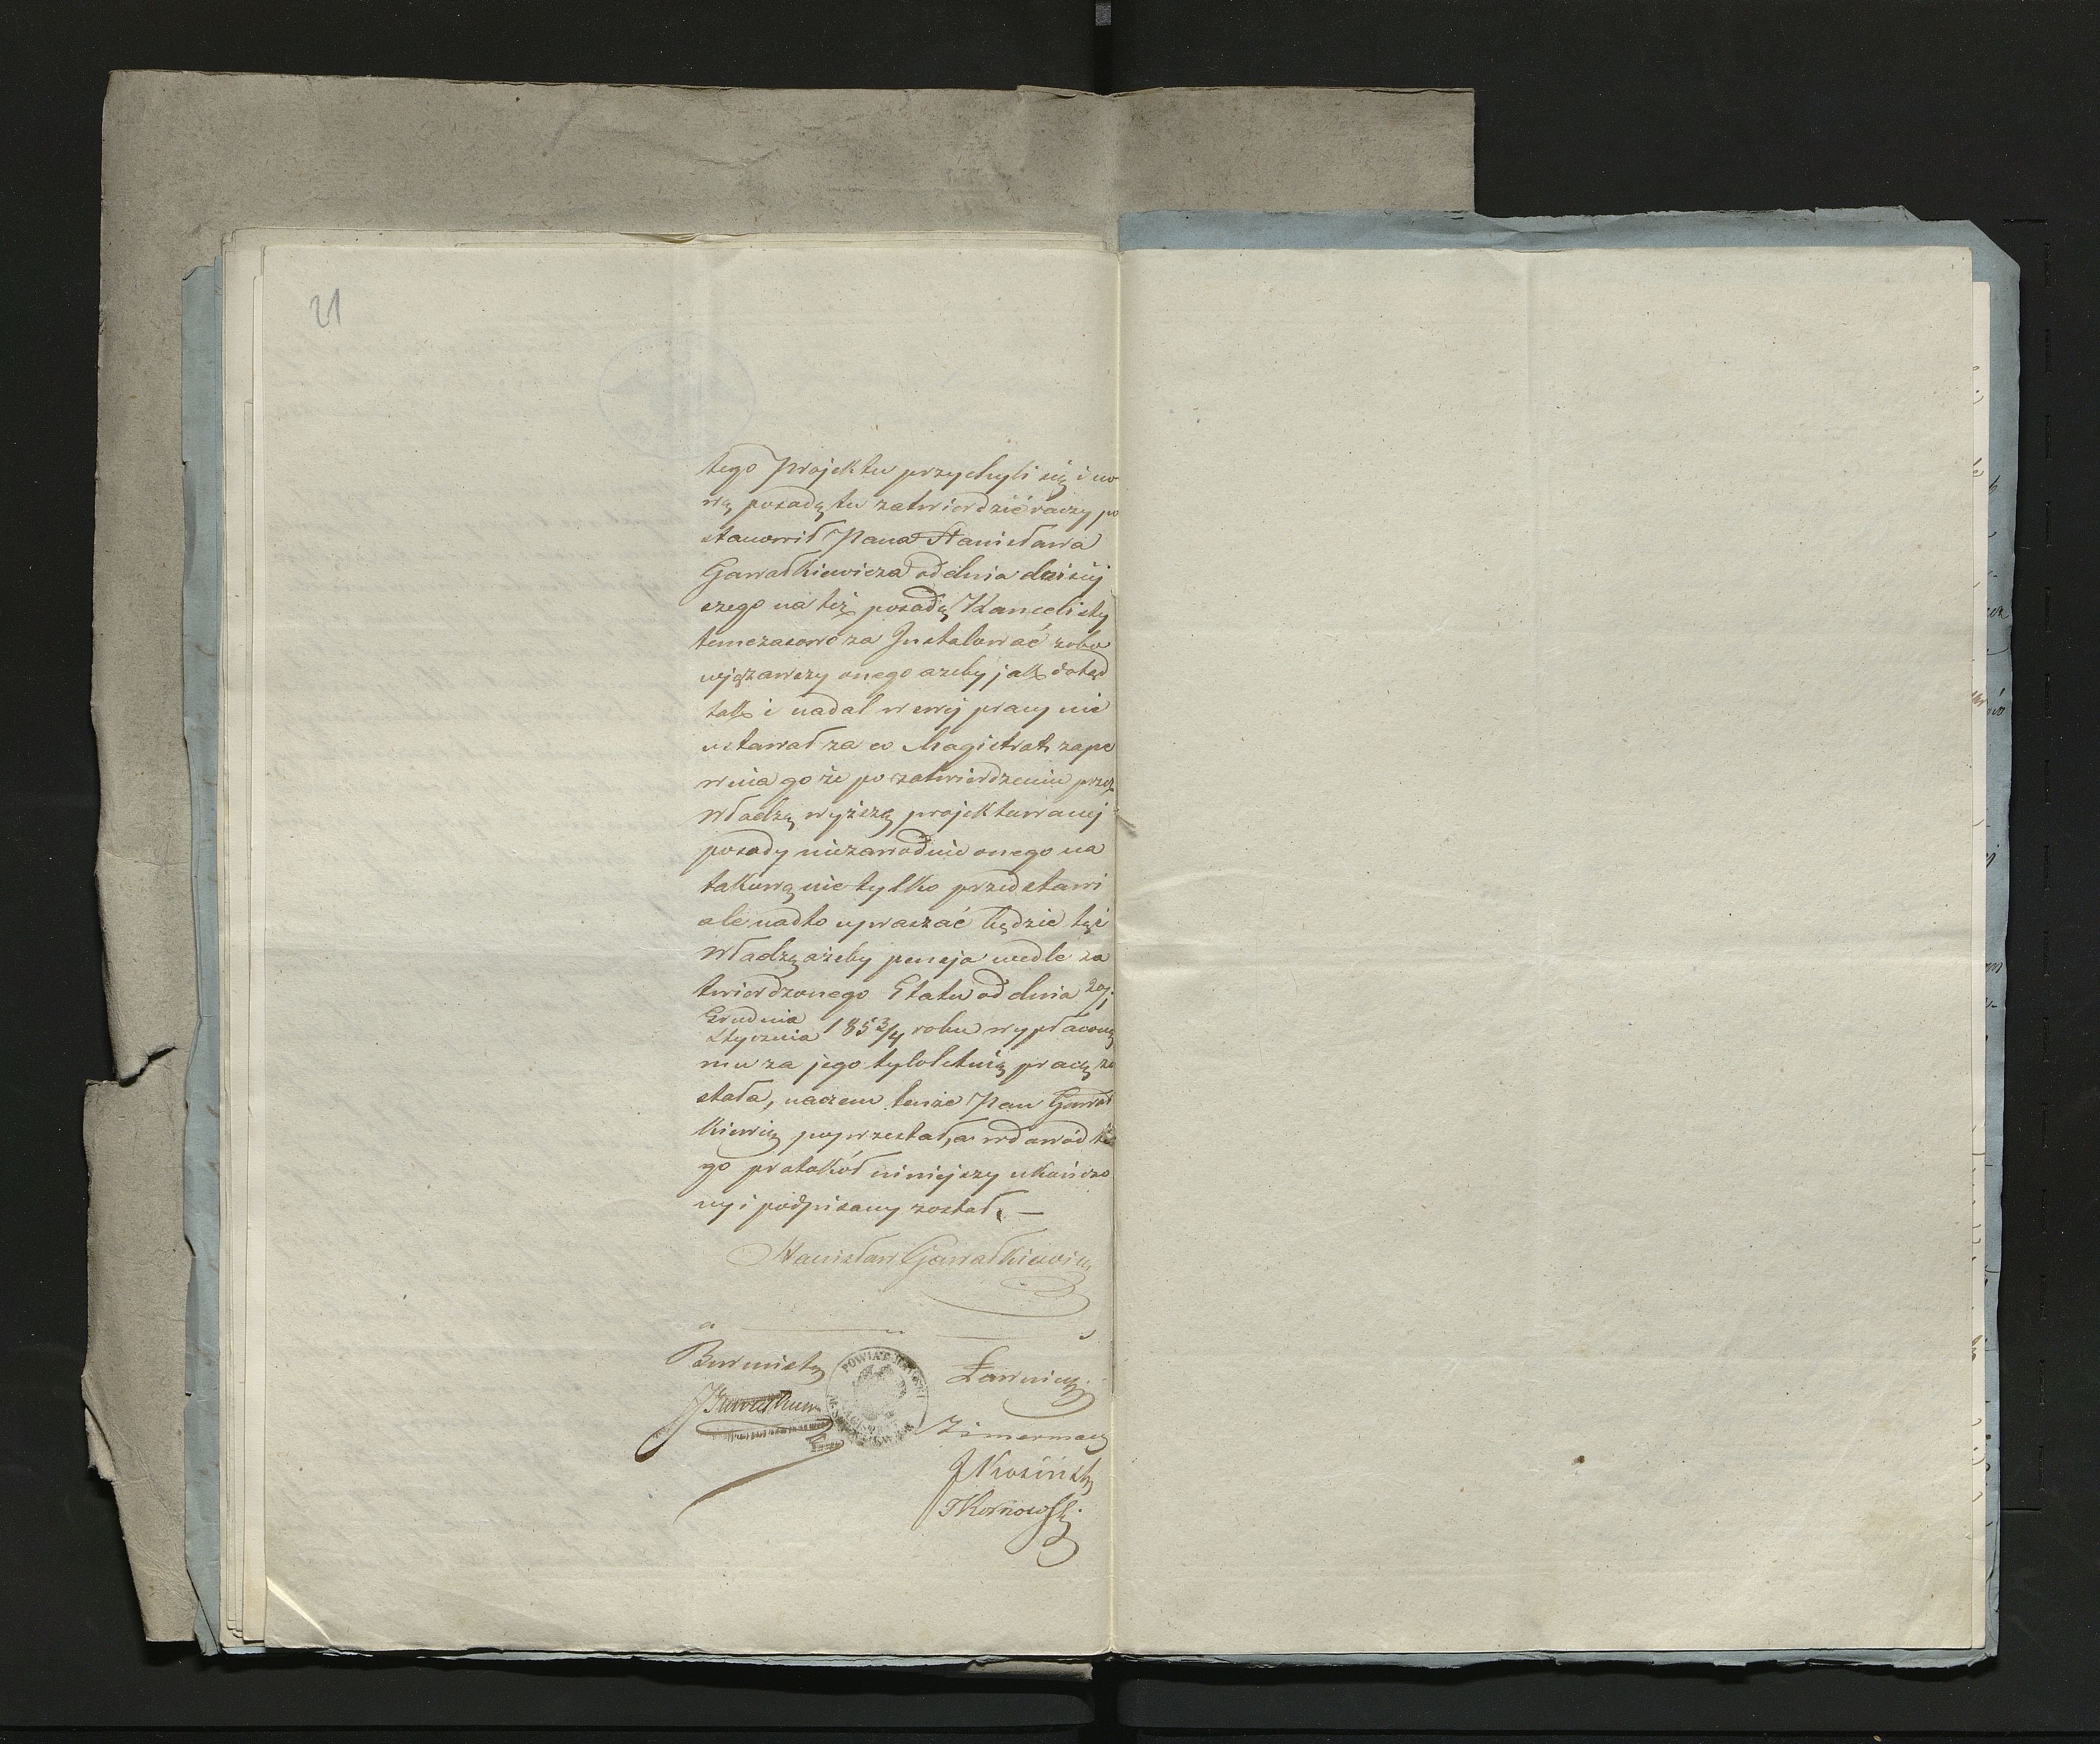 21
tego Projektu przychyli się i no
wą posadę tu zatwierdzić raczy po
stanowił Pana Stanisława
Gawałkiewicza od dnia dzisiej
szego na też posadę Kancelisty
temczasowo za Instalować zobo
wjązawszy onego ażeby jak dotąd
tak i nadal w swej pracy nie
ustawał za co Magistrat zape
wnia go że po zatwierdzeniu przez
Władzę wyższą projektowanej
posady niezawodnie onego na
takową nie tylko przedstawi
ale nadto upraszać będzie tęż
Władzę ażeby pensja wedle za
twierdzonego Etatu od dnia 20/1
Grudnia
Stycznia 185 3/4 roku wypłaconą
mu za jego tyloletnią pracę zo
stała, naczem tenże Pan Gawał
kiewicz poprzestał, a w dowód te
go protokół niniejszy ukończo
ny i podpisany został. —
Stanisław Gawałkiewicz
Burmistrz
Ławnicy
Zimerman
J Kosiński
POWIAT